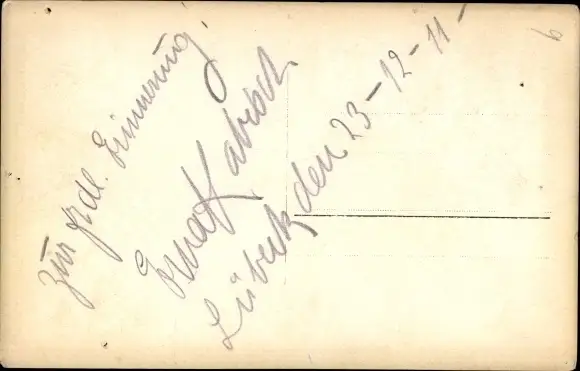 Zur frdl. Erinnerung!
Erna Kabisch
Lübeck den 23-12-11-
6